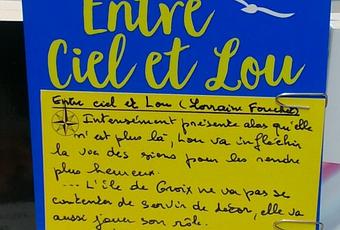 Entre
Ciel et Lou
Entre ciel et Lou (Lorraine Fouchet)
Intensément présente alors qu'elle
n'est plus là, Lou va infléchir
la vie des siens pour les rendre
plus heureux.
... L'île de Groix ne va pas se
contenter de servir de décor, elle va
aussi jouer son rôle.